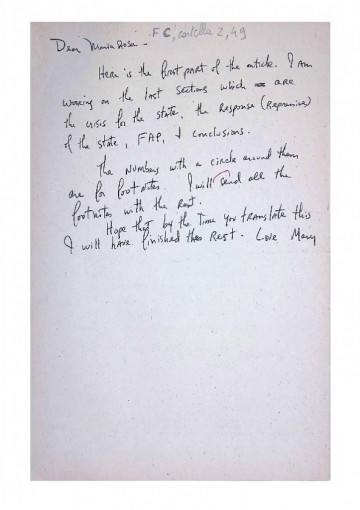 FC, cartella 2, 49
Dear Maria Rosa -
Here is the first part of the article. I am
working on the last sections which are
the crisis for the state, the Response (Repressive)
of the state, FAP, & conclusions.
The numbers with a circle around them
are for footnotes. I will send all the
footnotes with the rest.
Hope that by the time you translate this
I will have finished the Rest. Love Mary